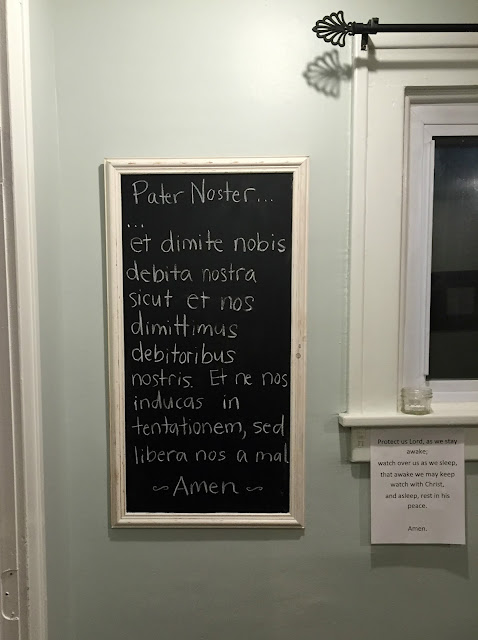 Pater Noster...
...
et dimite nobis
debita nostra
sicut et nos
dimittimus
debitoribus
nostris. Et ne nos
inducas in
tentationem, sed
libera nos a mal
~ Amen ~
Protect us Lord, as we stay
awake;
watch over us as we sleep,
that awake we may keep
watch with Christ,
and asleep, rest in his
peace.
Amen.